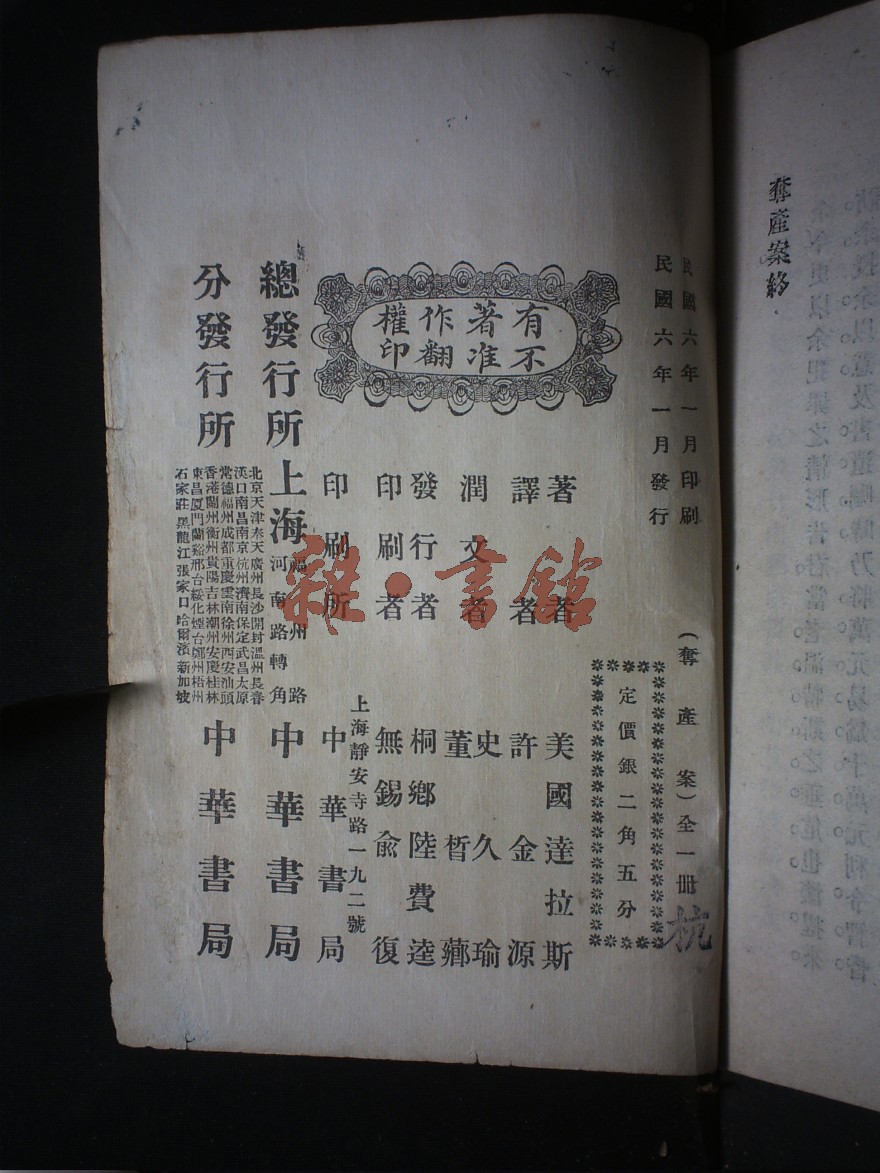 奪產案終
民國六年一月印刷
民國六年一月發行
（奪產案）全一冊
杭
定價銀二角五分
有著作權
不准翻印
著者 美國達拉斯
譯者 許金源
潤文者 史久瑜
董晳薌
發行者 桐鄉陸費逵
印刷者 無錫俞復
上海靜安寺路一九二號
印刷所 中華書局
總發行所 上海 福州路河南路轉角 中華書局
分發行所
北京天津奉天廣州長沙開封溫州長春
漢口南昌南京杭州濟南保定武昌太原
常德福州成都重慶雲南徐州西安汕頭
香港蘭州衡州貴陽吉林潮州安慶桂林
東昌厦門蘭谿邢台綏化煙台鄭州梧州
石家莊黑龍江張家口哈爾濱新加坡
中華書局
雜·書館